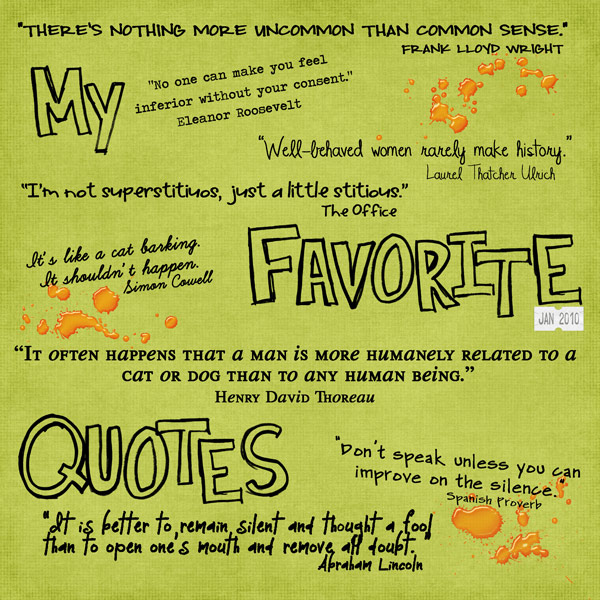 "THERE'S NOTHING MORE UNCOMMON THAN COMMON SENSE."
FRANK LLOYD WRIGHT
My
"No one can make you feel
inferior without your consent."
Eleanor Roosevelt
"Well-behaved women rarely make history."
Laurel Thatcher Ulrich
"I'm not superstitiuos, just a little stitious."
The Office
FAVORITE
JAN 2010
It's like a cat barking.
It shouldn't happen.
Simon Cowell
"It often happens that a man is more humanely related to a
cat or dog than to any human being."
Henry David Thoreau
QUOTES
"Don't speak unless you can
improve on the silence."
Spanish Proverb
"It is better to remain silent and thought a fool
than to open one's mouth and remove all doubt."
Abraham Lincoln